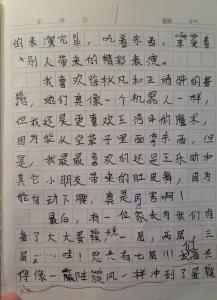 的表演完毕,吃着东西,享受着
别人带来的精彩表演。
我喜欢徐枞凡和王清晔的舞
蹈,她们真像一个机器人一样,
但我还是更喜欢王清晔的魔术,
因为能从空袋子里面拿东西,但
是,我最最喜欢的还是王乐昕和
其它小朋友带来的肚皮舞,因为
能自动下腰,真是厉害啊!
最后,有一位家长为我们准
备了大大蛋糕,一层,两层,三
层……哇!总共有七层!!!我
像一阵旋风一样冲到了蛋糕